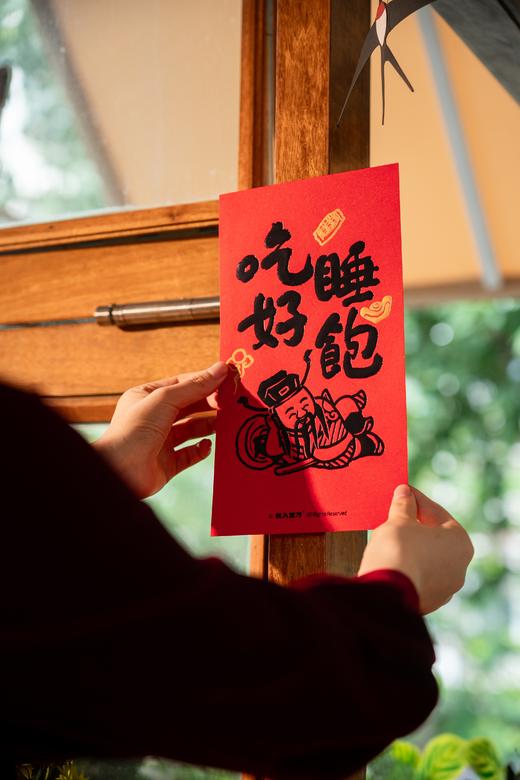 吃好
睡飽
All Rights Reserved